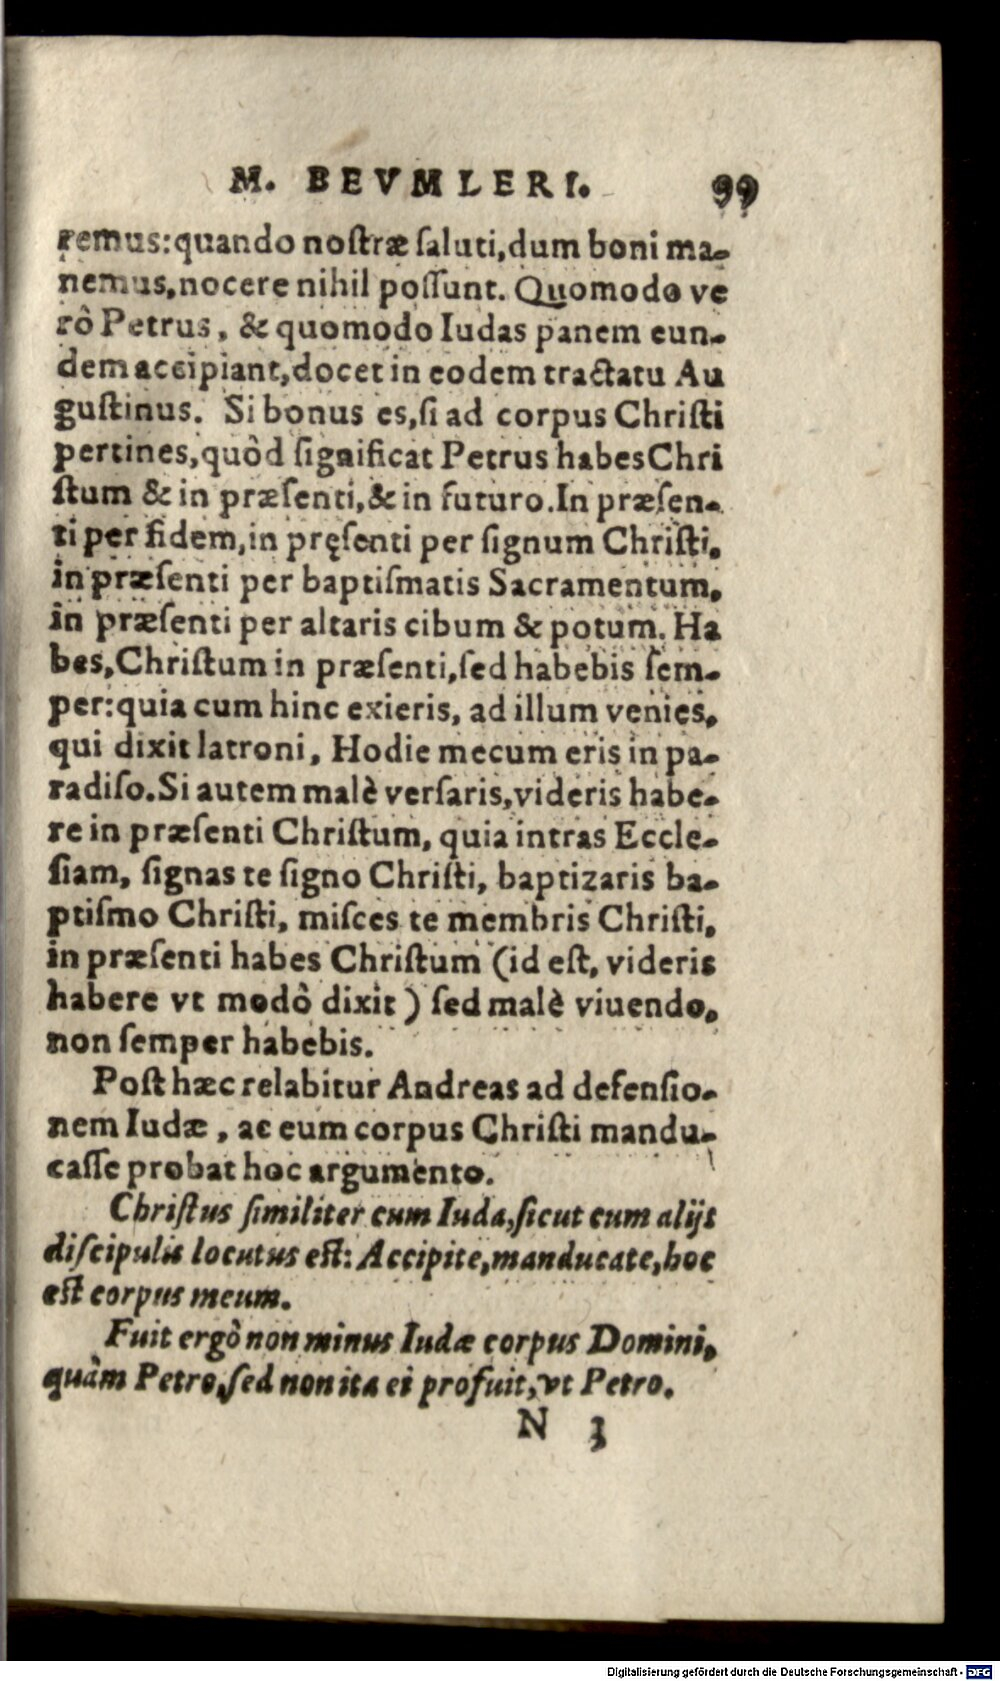 M. BEVMLERI. 99
remus:quando nostræ saluti,dum boni ma-
nemus,nocere nihil possunt. Quomodo ve
rô Petrus, & quomodo Iudas panem eun-
dem accipiant,docet in eodem tractatu Au
gustinus. Si bonus es,si ad corpus Christi
pertines,quôd significat Petrus habes Chri
stum & in præsenti,& in futuro. In præsen-
ti per fidem,in pręsenti per signum Christi,
in præsenti per baptismatis Sacramentum,
in præsenti per altaris cibum & potum. Ha
bes,Christum in præsenti,sed habebis sem-
per:quia cum hinc exieris, ad illum venies,
qui dixit latroni, Hodie mecum eris in pa-
radiso. Si autem malè versaris,videris habe-
re in præsenti Christum, quia intras Eccle-
siam, signas te signo Christi, baptizaris ba-
ptismo Christi, misces te membris Christi,
in præsenti habes Christum (id est, videris
habere vt modô dixit) sed malè viuendo,
non semper habebis.
Post hæc relabitur Andreas ad defensio-
nem Iudæ, ac eum corpus Christi mandu-
casse probat hoc argumento.
Christus similiter cum Iuda,sicut cum alijs
discipulis locutus est: Accipite,manducate,hoc
est corpus meum.
Fuit ergò non minus Iudæ corpus Domini,
quàm Petro,sed non ita ei profuit,vt Petro.
N 3
Digitalisierung gefördert durch die Deutsche Forschungsgemeinschaft - DFG